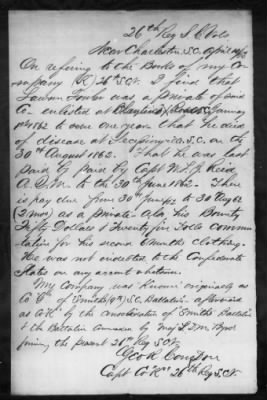 26th Reg S.C. Vols
Near Charleston S.C. April
On refering to the Books of my Com-
pany (K) 26th S.C.V. I find that
was a private of said
Co- enlisted at
1862 to serve one year that he died
of disease at S.C. on the
30th August 1862. That he was last
paid by Capt W. J. Reid
A.Q.M. to the 30th June 1862. There
is pay due from 30 June/62 to 30 Aug 62
(2 mos) as a private Also his Bounty
Fifty Dollars & Twenty five Dolls commu-
tation for his second 6 months clothing.
He was not indebted to the Confederate
States on any account whatever.
My Company was Known originally as
Co of Smith's S.C. Battalion afterward
as Co K by the consolidation of Smith's Battalion
& the Battalion by Maj
forming the present 26th Reg S.C.V.
Capt Co K 26th Reg S.C.V.